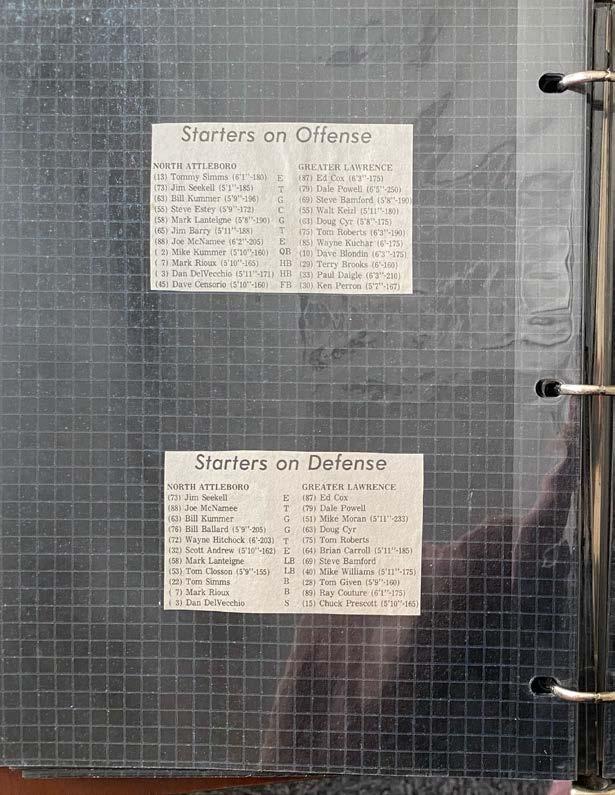 Starters on Offense
NORTH ATTLEBORO GREATER LAWRENCE
(13) Tommy Simms (6'1"-180) E (87) Ed Cox (6'3"-175)
(73) Jim Seekell (5'1"-185) T (79) Dale Powell (6'5"-250)
(63) Bill Kummer (5'9"-196) G (69) Steve Bamford (5'8"-190)
(55) Steve Estey (5'9"-172) C (55) Walt Keizl (5'11"-180)
(58) Mark Lanteigne (5'8"-190) G (63) Doug Cyr (5'8"-175)
(65) Jim Barry (5'11"-188) T (75) Tom Roberts (6'3"-190)
(88) Joe McNamee (6'2"-205) E (85) Wayne Kuchar (6'-175)
( 2) Mike Kummer (5'10"-160) QB (10) Dave Blondin (6'3"-175)
( 7) Mark Rioux (5'10"-165) HB (29) Terry Brooks (6'-160)
( 3) Dan DelVecchio (5'11"-171) HB (33) Paul Daigle (6'3"-210)
(45) Dave Censorio (5'10"-160) FB (30) Ken Perron (5'7"-167)
Starters on Defense
NORTH ATTLEBORO GREATER LAWRENCE
(73) Jim Seekell E (87) Ed Cox
(88) Joe McNamee T (79) Dale Powell
(63) Bill Kummer G (51) Mike Moran (5'11"-233)
(76) Bill Ballard (5'9"-205) G (63) Doug Cyr
(72) Wayne Hitchock (6'-203) T (75) Tom Roberts
(32) Scott Andrew (5'10"-162) E (64) Brian Carroll (5'11"-185)
(58) Mark Lanteigne LB (69) Steve Bamford
(53) Tom Closson (5'9"-155) LB (40) Mike Williams (5'11"-175)
(22) Tom Simms B (28) Tom Given (5'9"-160)
( 7) Mark Rioux B (89) Ray Couture (6'1"-175)
( 3) Dan DelVecchio S (15) Chuck Prescott (5'10"-165)